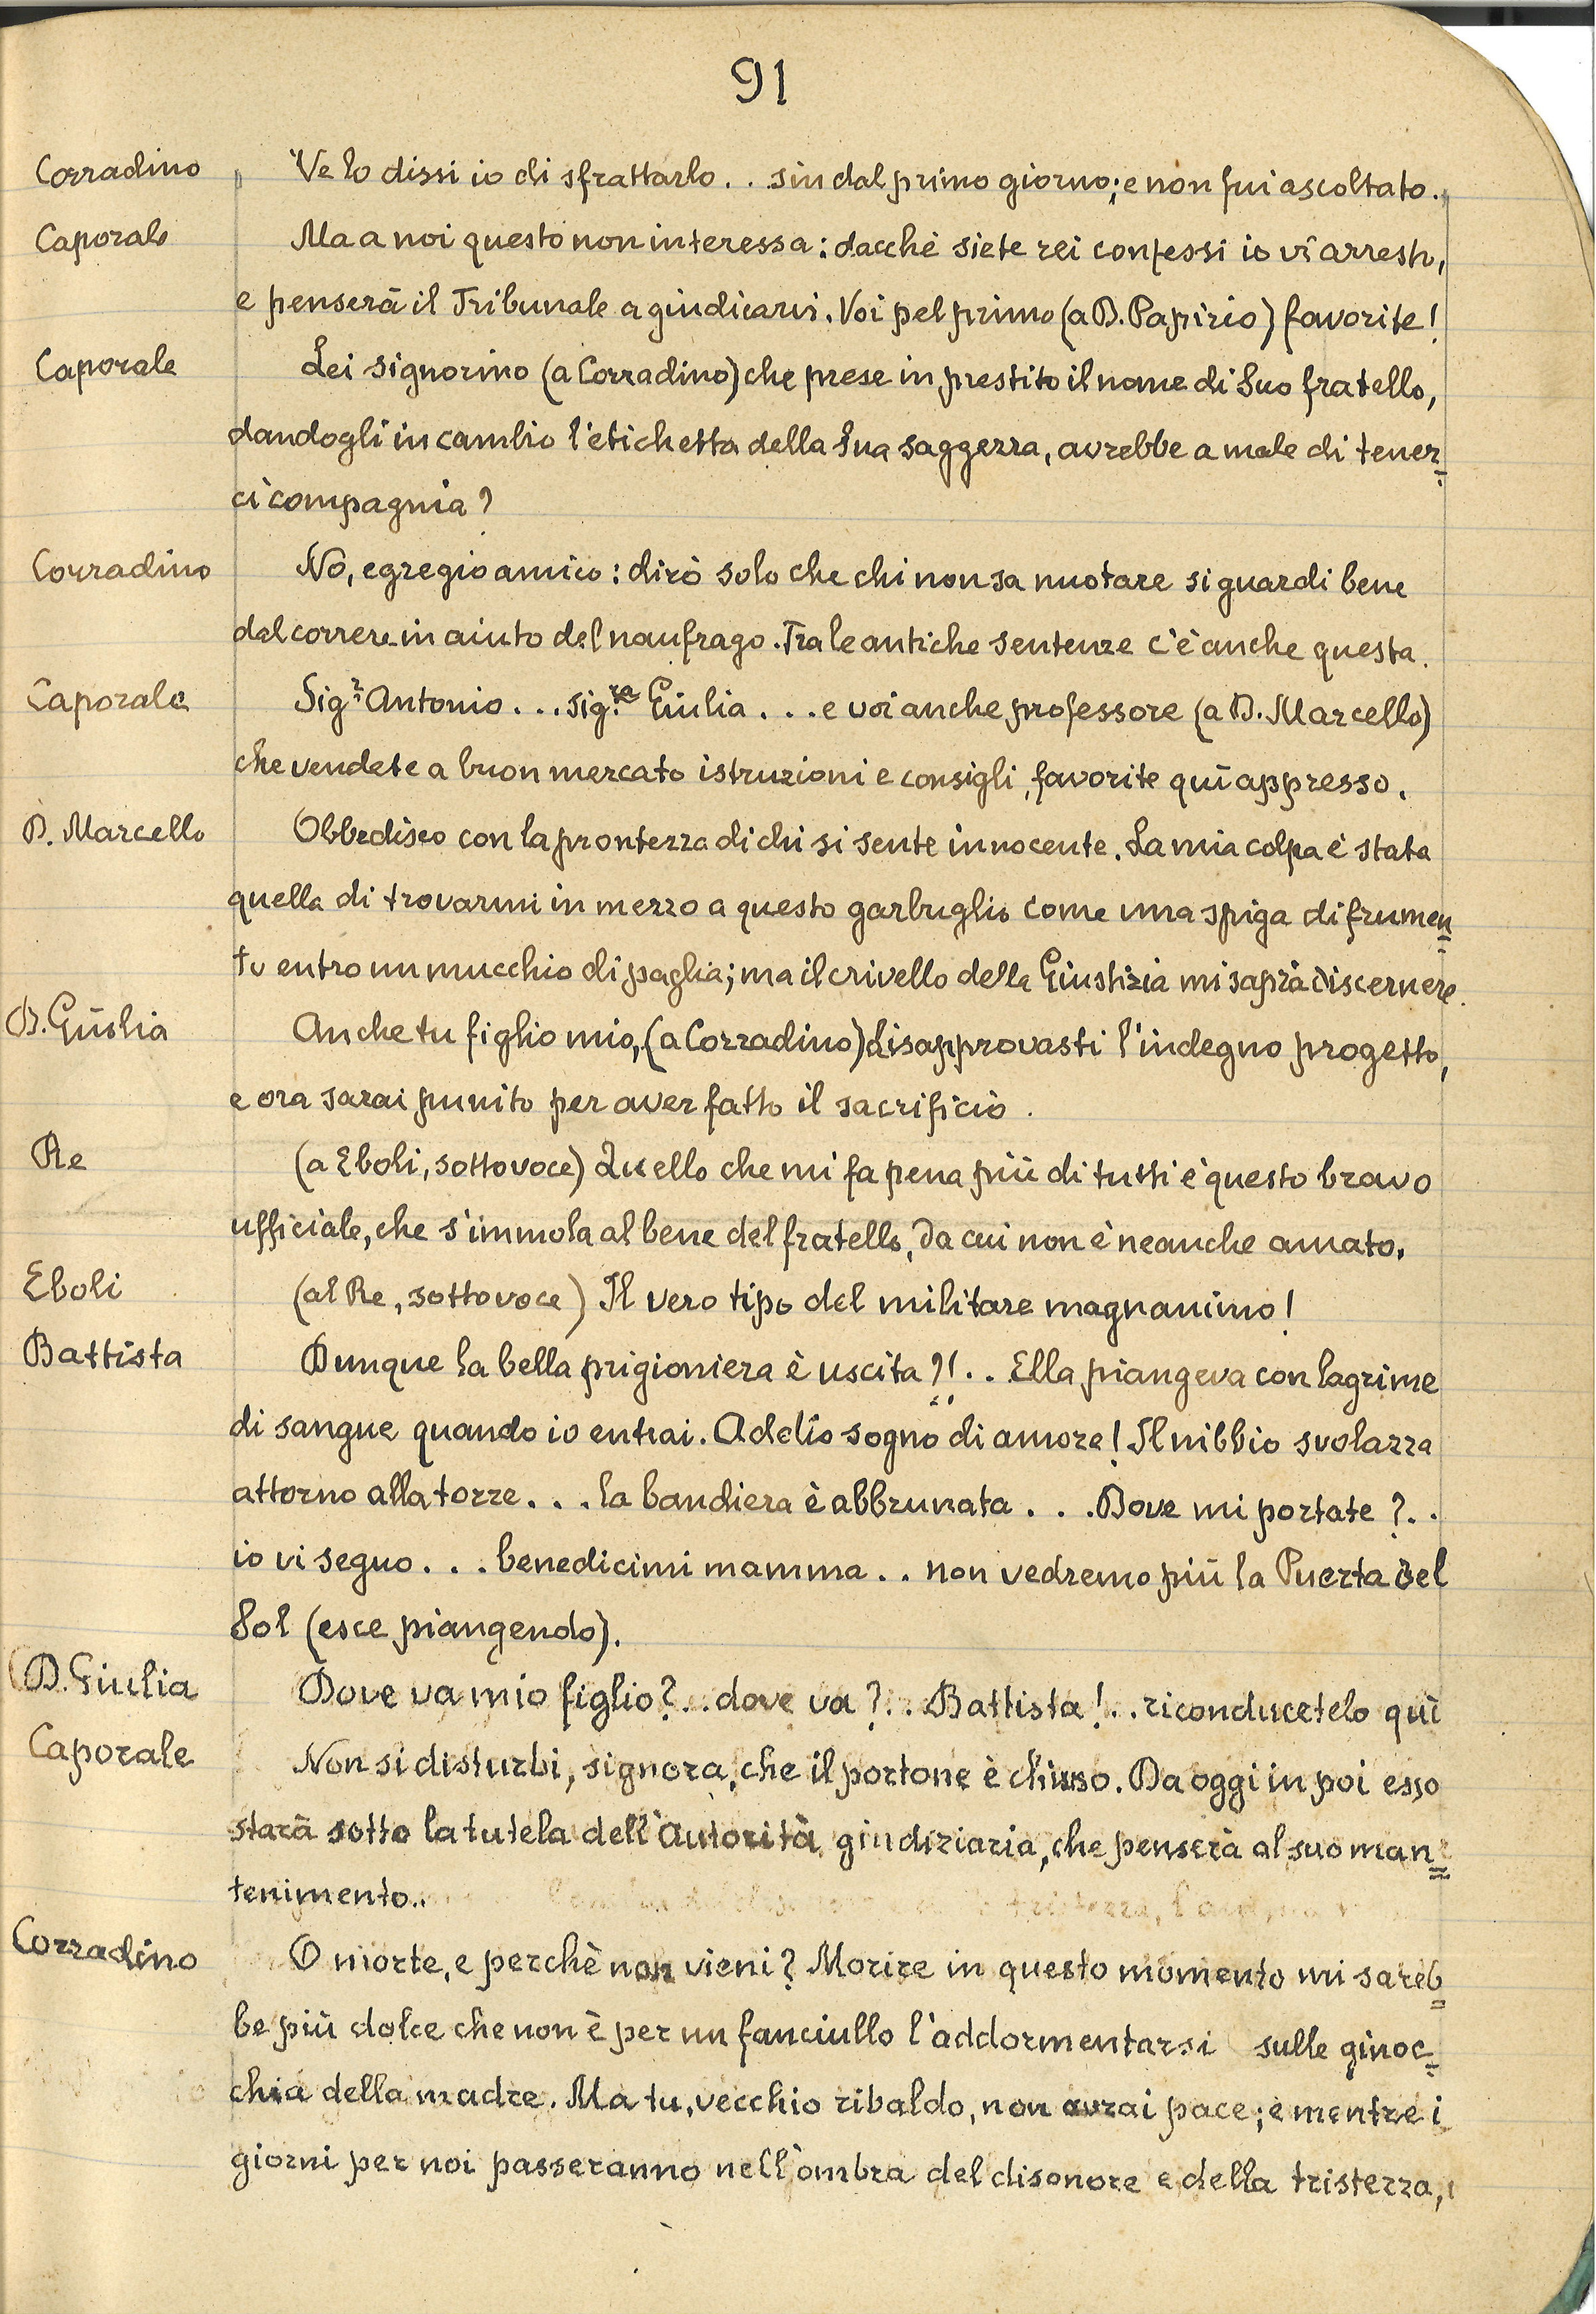 91
Corradino Ve lo dissi io di sfrattarlo.. sin dal primo giorno; e non fui ascoltato.
Caporale Ma a noi questo non interessa: dacchè siete rei confessi io vi arresto,
e penserà il Tribunale a giudicarvi. Voi pel primo (a D. Papirio) favorite!
Caporale Lei signorino (a Corradino) che prese in prestito il nome di Suo fratello,
dandogli in cambio l'etichetta della Sua saggezza, avrebbe a male di tener=
ci compagnia?
Corradino No, egregio amico: dirò solo che chi non sa nuotare si guardi bene
dal correre in aiuto del naufrago. Tra le antiche sentenze c'è anche questa.
Caporale Sig.r Antonio... sig.ra Giulia... e voi anche professore (a D. Marcello)
che vendete a buon mercato istruzioni e consigli, favorite quì appresso.
D. Marcello Obbedisco con la prontezza di chi si sente innocente. La mia colpa è stata
quella di trovarmi in mezzo a questo garbuglio come una spiga di frumen=
to entro un mucchio di paglia; ma il crivello della Giustizia mi saprà discernere.
D. Giulia Anche tu figlio mio, (a Corradino) disapprovasti l'indegno progetto,
e ora sarai punito per aver fatto il sacrificio.
Re (a Eboli, sottovoce) Quello che mi fa pena più di tutti è questo bravo
ufficiale, che s'immola al bene del fratello, da cui non è neanche amato.
Eboli (al Re, sottovoce) Il vero tipo del militare magnanimo!
Battista Dunque la bella prigioniera è uscita?!.. Ella piangeva con lagrime
di sangue quando io entrai. Addio sogno di amore! Il nibbio svolazza
attorno alla torre... la bandiera è abbrunata... Dove mi portate?..
io vi seguo... benedicimi mamma.. non vedremo più la Puerta del
Sol (esce piangendo).
D. Giulia Dove va mio figlio?.. dove va?.. Battista!.. riconducetelo quì
Caporale Non si disturbi, signora, che il portone è chiuso. Da oggi in poi esso
starà sotto la tutela dell'Autorità giudiziaria, che penserà al suo man=
tenimento..
Corradino O morte, e perchè non vieni? Morire in questo momento mi sareb=
be più dolce che non è per un fanciullo l'addormentarsi sulle ginoc=
chia della madre. Ma tu, vecchio ribaldo, non avrai pace; e mentre i
giorni per noi passeranno nell'ombra del disonore e della tristezza,